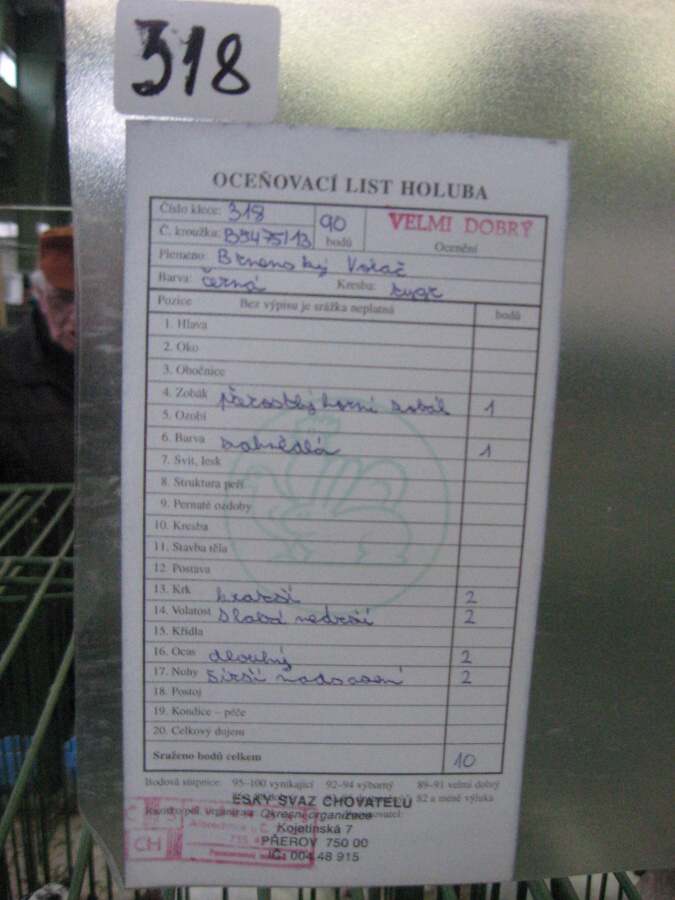 318
OCEŇOVACÍ LIST HOLUBA
Číslo klece: 318
90 bodů
VELMI DOBRÝ
Ocenění
Č. kroužku:
Plemeno: Brnenský Voláč
Barva: černá Kresba: tygr
Pozice Bez výpisu je srážka neplatná bodů
1. Hlava
2. Oko
3. Obočnice
4. Zobák přerostlý horní zobák 1
5. Ozobí
6. Barva zahnědlá 1
7. Svit, lesk
8. Struktura peří
9. Pernaté ozdoby
10. Kresba
11. Stavba těla
12. Postava
13. Krk kratší 2
14. Volatost slabá nedrží 2
15. Křídla
16. Ocas dlouhý 2
17. Nohy širší 2
18. Postoj
19. Kondice – péče
20. Celkový dojem
Sraženo bodů celkem 10
Bodová stupnice: 95–100 vynikající 92–94 výborný 89–91 velmi dobrý
82 a méně výluka
ESKÝ SVAZ CHOVATELŮ
Okresní organizace
Kojetínská 7
PŘEROV 750 00
IČ: 004 48 915
CH